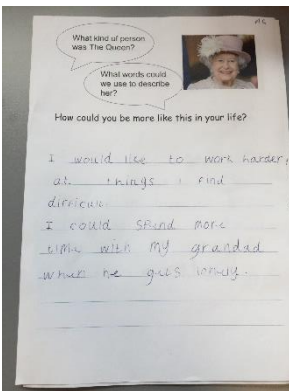 What kind of person
was The Queen?
What words could
we use to describe
her?
How could you be more like this in your life?
I would like to work harder
at things I find
difficult.
I could spend more
time with my grandad
when he gets lonely.